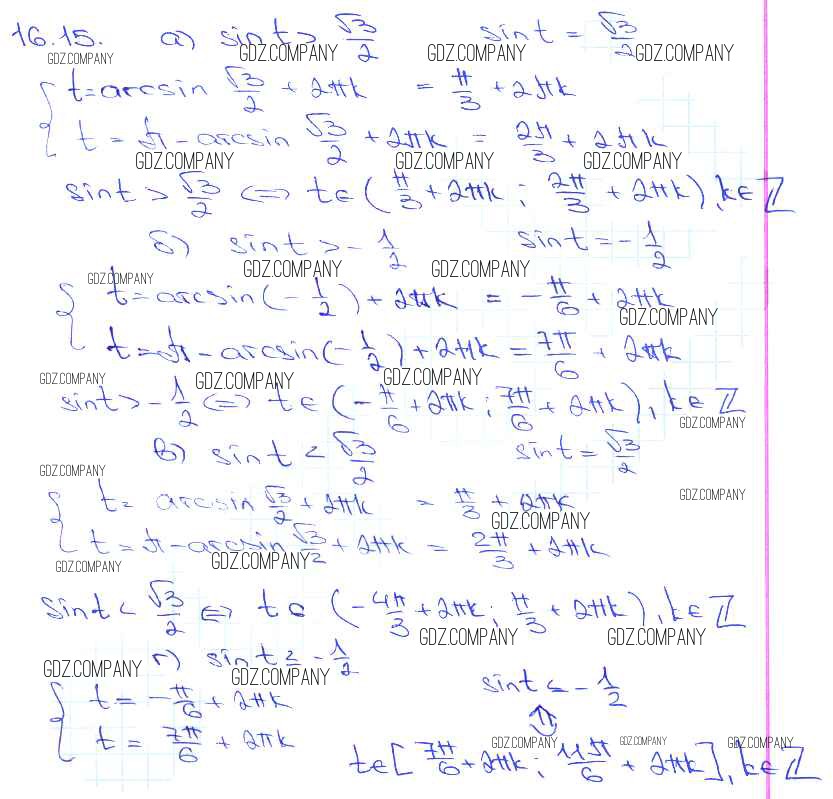 16.15. а) sin t > √3/2 sin t = √3/2
GDZ.COMPANY GDZ.COMPANY GDZ.COMPANY GDZ.COMPANY
{ t = arcsin √3/2 + 2πk = π/3 + 2πk
t = π - arcsin √3/2 + 2πk = 2π/3 + 2πk
GDZ.COMPANY GDZ.COMPANY GDZ.COMPANY
sin t > √3/2 <=> t ∈ (π/3 + 2πk ; 2π/3 + 2πk), k ∈ Z
б) sin t > - 1/2 sin t = - 1/2
GDZ.COMPANY GDZ.COMPANY GDZ.COMPANY
{ t = arcsin(- 1/2) + 2πk = - π/6 + 2πk
GDZ.COMPANY
t = π - arcsin(- 1/2) + 2πk = 7π/6 + 2πk
GDZ.COMPANY GDZ.COMPANY GDZ.COMPANY
sin t > - 1/2 <=> t ∈ (- π/6 + 2πk ; 7π/6 + 2πk), k ∈ Z
GDZ.COMPANY
в) sin t < √3/2 sin t = √3/2
GDZ.COMPANY
{ t = arcsin √3/2 + 2πk = π/3 + 2πk
GDZ.COMPANY
GDZ.COMPANY
t = π - arcsin √3/2 + 2πk = 2π/3 + 2πk
GDZ.COMPANY GDZ.COMPANY
sin t < √3/2 <=> t ∈ (- 4π/3 + 2πk ; π/3 + 2πk), k ∈ Z
GDZ.COMPANY GDZ.COMPANY
г) sin t ≤ - 1/2
GDZ.COMPANY GDZ.COMPANY
{ t = - π/6 + 2πk sin t ≤ - 1/2
t = 7π/6 + 2πk ⇕
GDZ.COMPANY GDZ.COMPANY GDZ.COMPANY
t ∈ [7π/6 + 2πk ; 11π/6 + 2πk], k ∈ Z